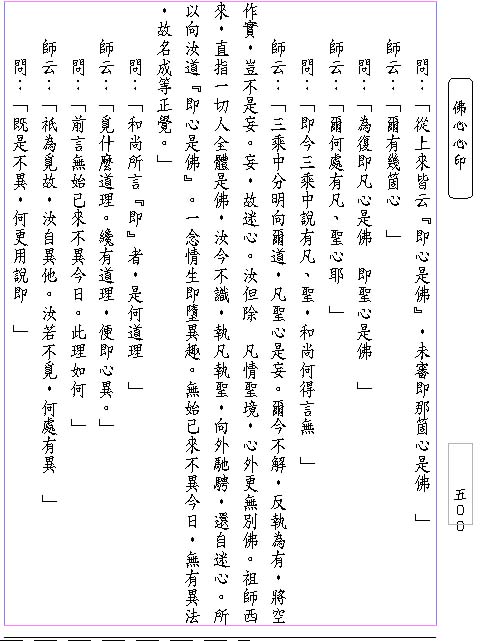 佛心心印
五００
問：「從上來皆云『即心是佛』，未審即那箇心是佛　」
師云：「爾有幾箇心　」
問：「為復即凡心是佛　即聖心是佛　」
師云：「爾何處有凡、聖心耶　」
問：「即今三乘中說有凡、聖，和尚何得言無　」
師云：「三乘中分明向爾道，凡聖心是妄。爾今不解，反執為有，將空
作實，豈不是妄。妄，故迷心。汝但除　凡情聖境，心外更無別佛。祖師西
來，直指一切人全體是佛，汝今不識，執凡執聖，向外馳騁，還自迷心。所
以向汝道『即心是佛』。一念情生即墮異趣。無始已來不異今日，無有異法
，故名成等正覺。」
問：「和尚所言『即』者，是何道理　」
師云：「覓什麼道理。纔有道理，便即心異。」
問：「前言無始已來不異今日。此理如何　」
師云：「祇為覓故，汝自異他。汝若不覓，何處有異　」
問：「既是不異，何更用說即　」